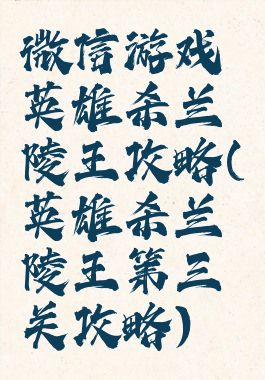 微信游戏
英雄杀兰
陵王攻略(
英雄杀兰
陵王第三
关攻略)